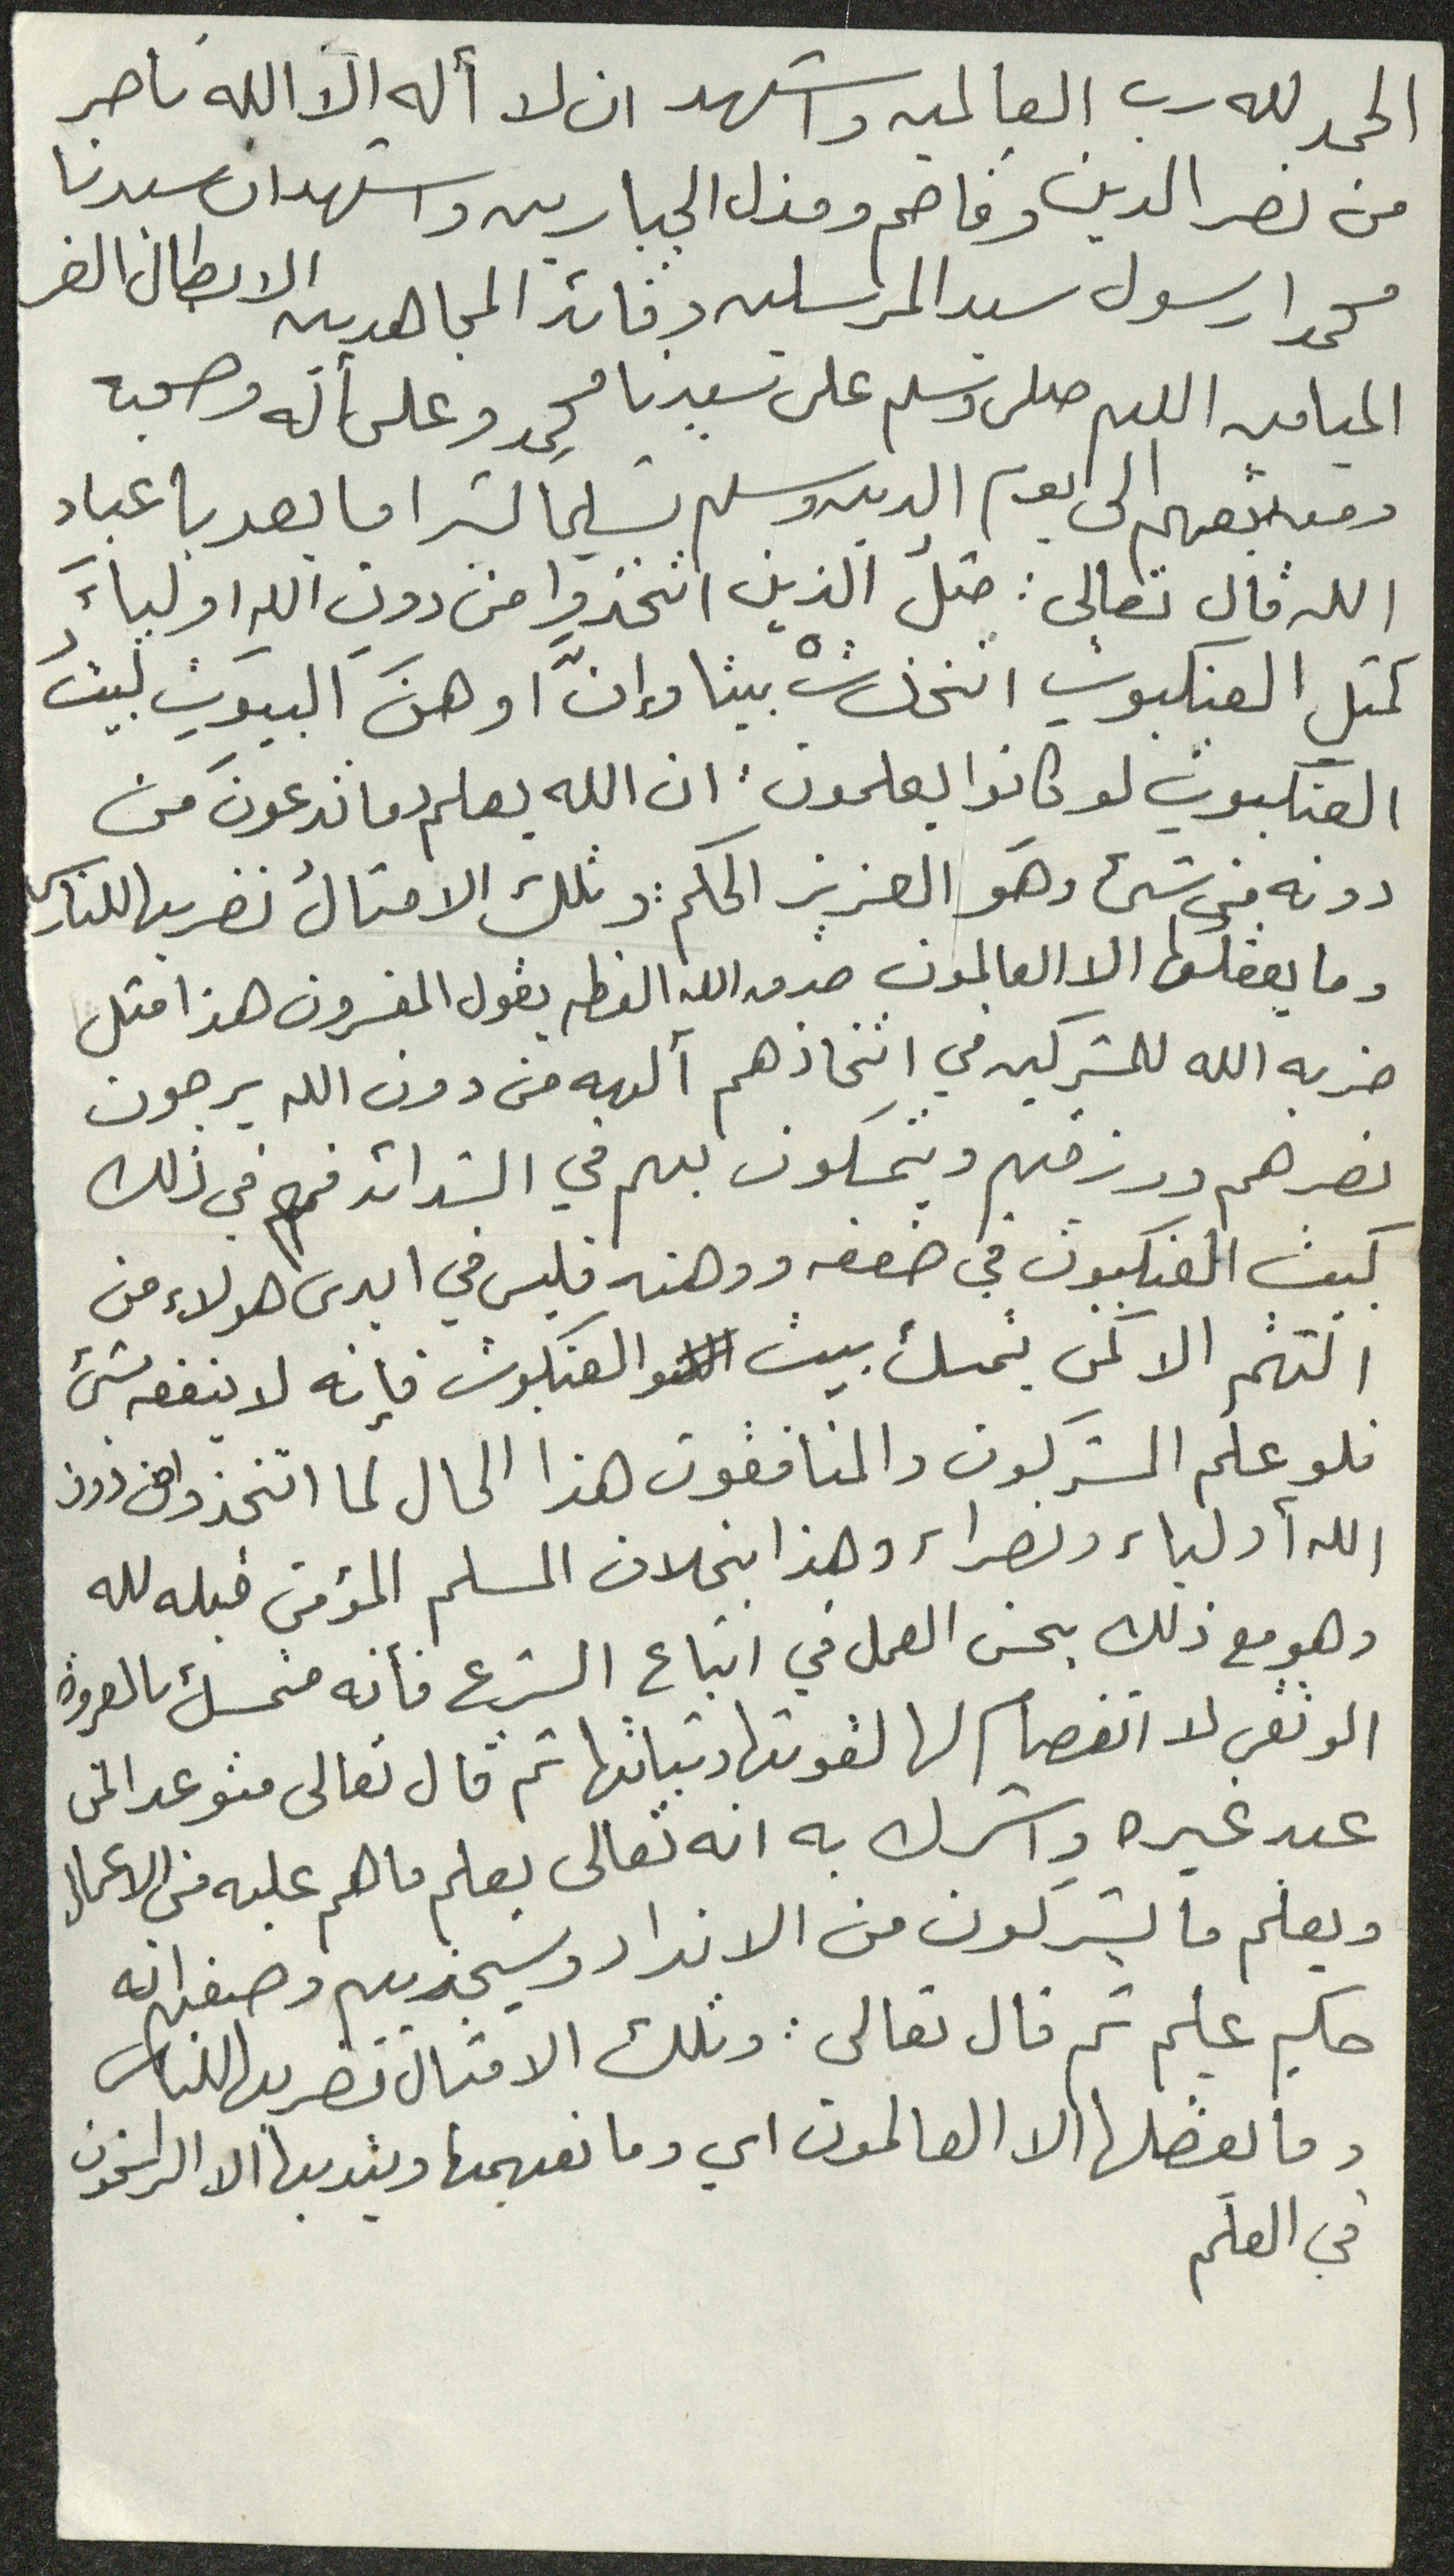 الحمد لله رب العالمين واشهد ان لا أله الا الله ناصر
من نصر الدين وقاصم ومذل الجبارين واشهد ان سيدنا
محمدا رسول سيد المرسلين وقائد المجاهدين الابطال الغر
الميامين اللهم صلى وسلم على سيدنا محمد وعلى أله وصحبه
ومن تبعهم الى يوم الدين وسلم تسليما كثيرا اما بعد يا عباد
الله قال تعالى : مثلُ الذين اتخذوا من دونِ الله اولياءَ
كمثلِ العنكبوتِ اتخذتْ بيتا وإنَّ اوهنَ البيوتِ لبيتُ
العنكبوتِ لو كانوا يعلمون : ان الله يعلم ما تدعونَ من
دونه من شئ وهو العزيز الحكيم : وتلك الامثالُ نضربها للناس
وما يعقلها الا العالمون صدق الله العظيم يقول المفسرون هذا مثل
ضربه الله للمشركين في اتخاذهم آلهه من دون الله يرجون
نصرهم ورزقهم ويتمسكون بهم في الشدائد فهم في ذلك
كبيت العنكبوت في ضعفه ووهنه فليس في ايدى هولاء من
الهتهم الا كمن يتمسك ببيت العنكبوت فإنه لا ينفعه شئ
فلو علم المشركون والمنافقون هذا الحال لما اتخذوا من دون
الله أولياء ونصراء وهذا بخلاف المسلم المؤمن قبله لله
وهو مع ذلك يحسن العمل في اتباع الشرع فأنه متمسك بالعروة
الوثقى لا انفصام لها لقوتها وثباتها ثم قال تعالى متوعد المن
عبد غيره واشرك به انه تعالى يعلم ما هم عليه من الاعمال
ويعلم ما يشركون من الانداد وسيجزيهم وصفهم انه
حكيم عليم ثم قال تعالى : وتلك الامثال نضربها للناس
وما يعقلها الا العالمون اي وما يفهمها ويتدبها الا الراسخون
في العلم